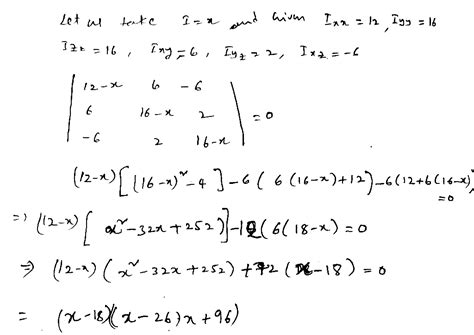 Let us take I = x and Given Ixx = 12, Iyy = 16
Izz = 16, Ixy = 6, Iyz = 2, Ixz = -6
| 12-x 6 -6 |
| 6 16-x 2 | = 0
| -6 2 16-x |
(12-x) [ (16-x)² - 4 ] - 6 ( 6 (16-x) + 12 ) - 6 (12 + 6 (16-x)) = 0
=> (12-x) [ x² - 32x + 252 ] - 12 ( 6 (18-x) = 0
=> (12-x) ( x² - 32x + 252 ) + 72 (x - 18) = 0
= (x-18) (x - 26) x + 96)